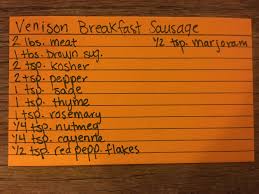 Venison Breakfast Sausage
2 lbs. meat
1/2 tsp. marjoram
1 tbs. brown sug.
2 tsp. kosher
2 tsp. pepper
1 tsp. sage
1 tsp. thyme
1 tsp. rosemary
1/4 tsp. nutmeg
1/4 tsp. cayenne
1/2 tsp. red pepp. flakes